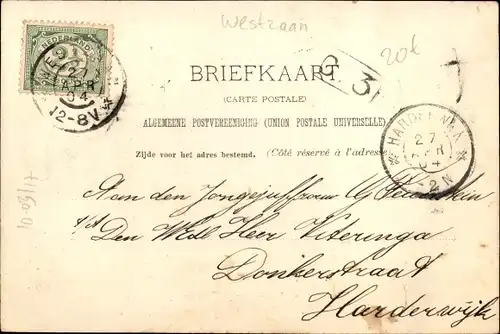 Westzaan
20t
NEDERLAND
2½
27
APR
04
12-8V
3
BRIEFKAART
(CARTE POSTALE)
ALGEMEENE POSTVEREENIGING (UNION POSTALE UNIVERSELLE)
Zijde voor het adres bestemd. (Côté réservé à l'adresse.)
27
APR
04
2N
Aan den Jongejuffrouw
Den Weled Heer Viteringa
Donkerstraat
Harderwijk